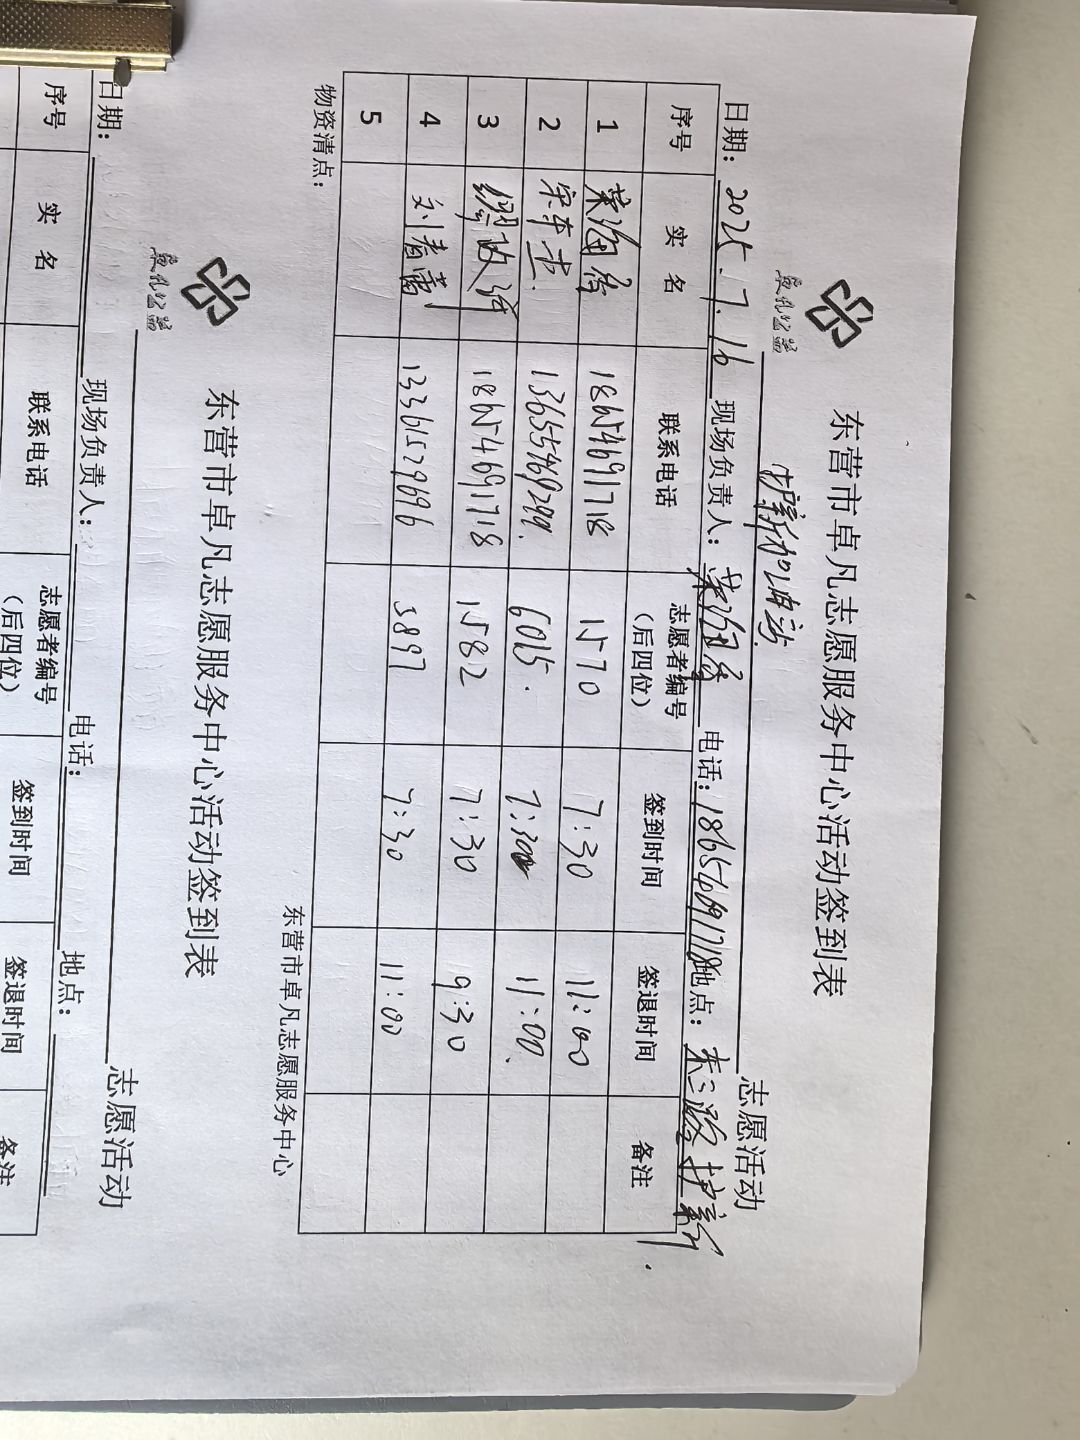 东营市卓凡志愿服务中心活动签到表
护新加油站 志愿活动
日期：2025.7.16 现场负责人： 电话：18654691718 地点：
序号 实 名 联系电话 志愿者编号（后四位） 签到时间 签退时间 备注
1 18654691718 1570 7:30 11:00
2 13655469299. 6015. 7:30 11:00.
3 18654691718 1582 7:30 9:30
4 刘春蕾 13361529696 3897 7:30 11:00
5
物资清点： 东营市卓凡志愿服务中心
东营市卓凡志愿服务中心活动签到表
志愿活动
日期： 现场负责人： 电话： 地点：
序号 实 名 联系电话 志愿者编号（后四位） 签到时间 签退时间 备注